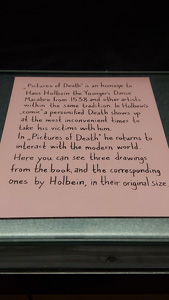 „Pictures of Death" is an homage to
Hans Holbein the Younger's Danse
Macabre from 1538 and other artists
within the same tradition. In Holbein's
„comic" a personified Death shows up
at the most inconvenient times to
take his victims with him.
In „Pictures of Death" he returns to
interact with the modern world.
Here you can see three drawings
from the book, and the corresponding
ones by Holbein, in their original size.